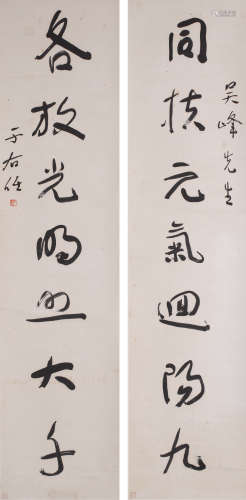 吴峰先生
同扶元氣迴陽九
各放光明照大千
于右任